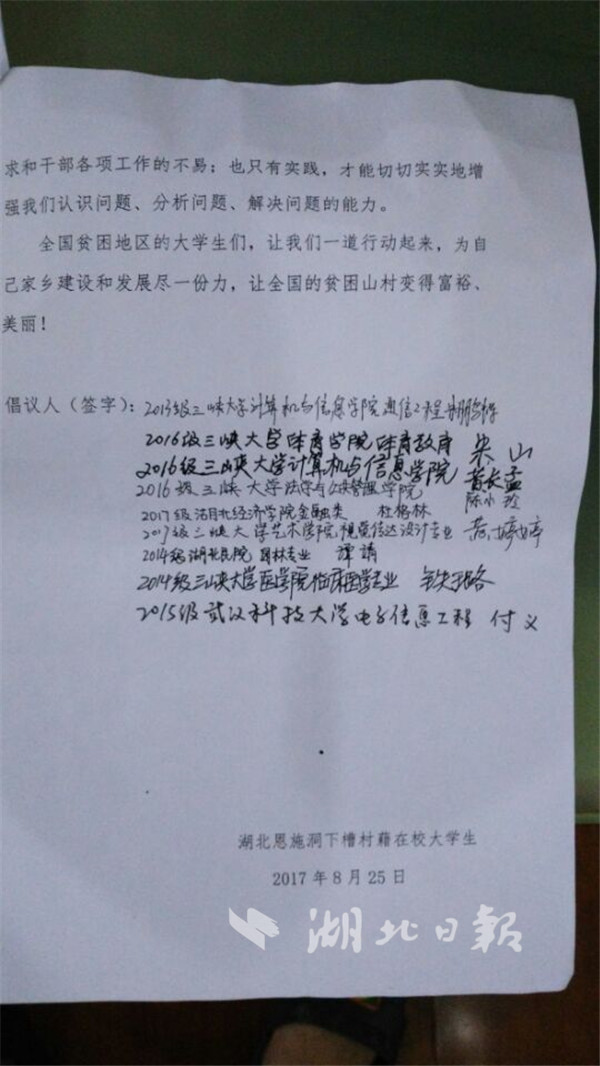 求和干部各项工作的不易；也只有实践，才能切切实实地增
强我们认识问题、分析问题、解决问题的能力。
全国贫困地区的大学生们，让我们一道行动起来，为自
己家乡建设和发展尽一份力，让全国的贫困山村变得富裕、
美丽！
倡议人（签字）：2013级三峡大学计算机与信息学院通信工程
2016级三峡大学体育学院体育教育 朱山
2016级三峡大学计算机与信息学院
2016级三峡大学法学与公共管理学院 陈小
2017级湖北经济学院金融类 杜格林
2017级三峡大学艺术学院视觉传达设计专业 婷婷
2014级湖北民院园林专业 谭靖
2014级三峡大学医学院临床医学专业
2015级武汉科技大学电子信息工程 付义
湖北恩施洞下槽村籍在校大学生
2017年8月25日
湖北日報